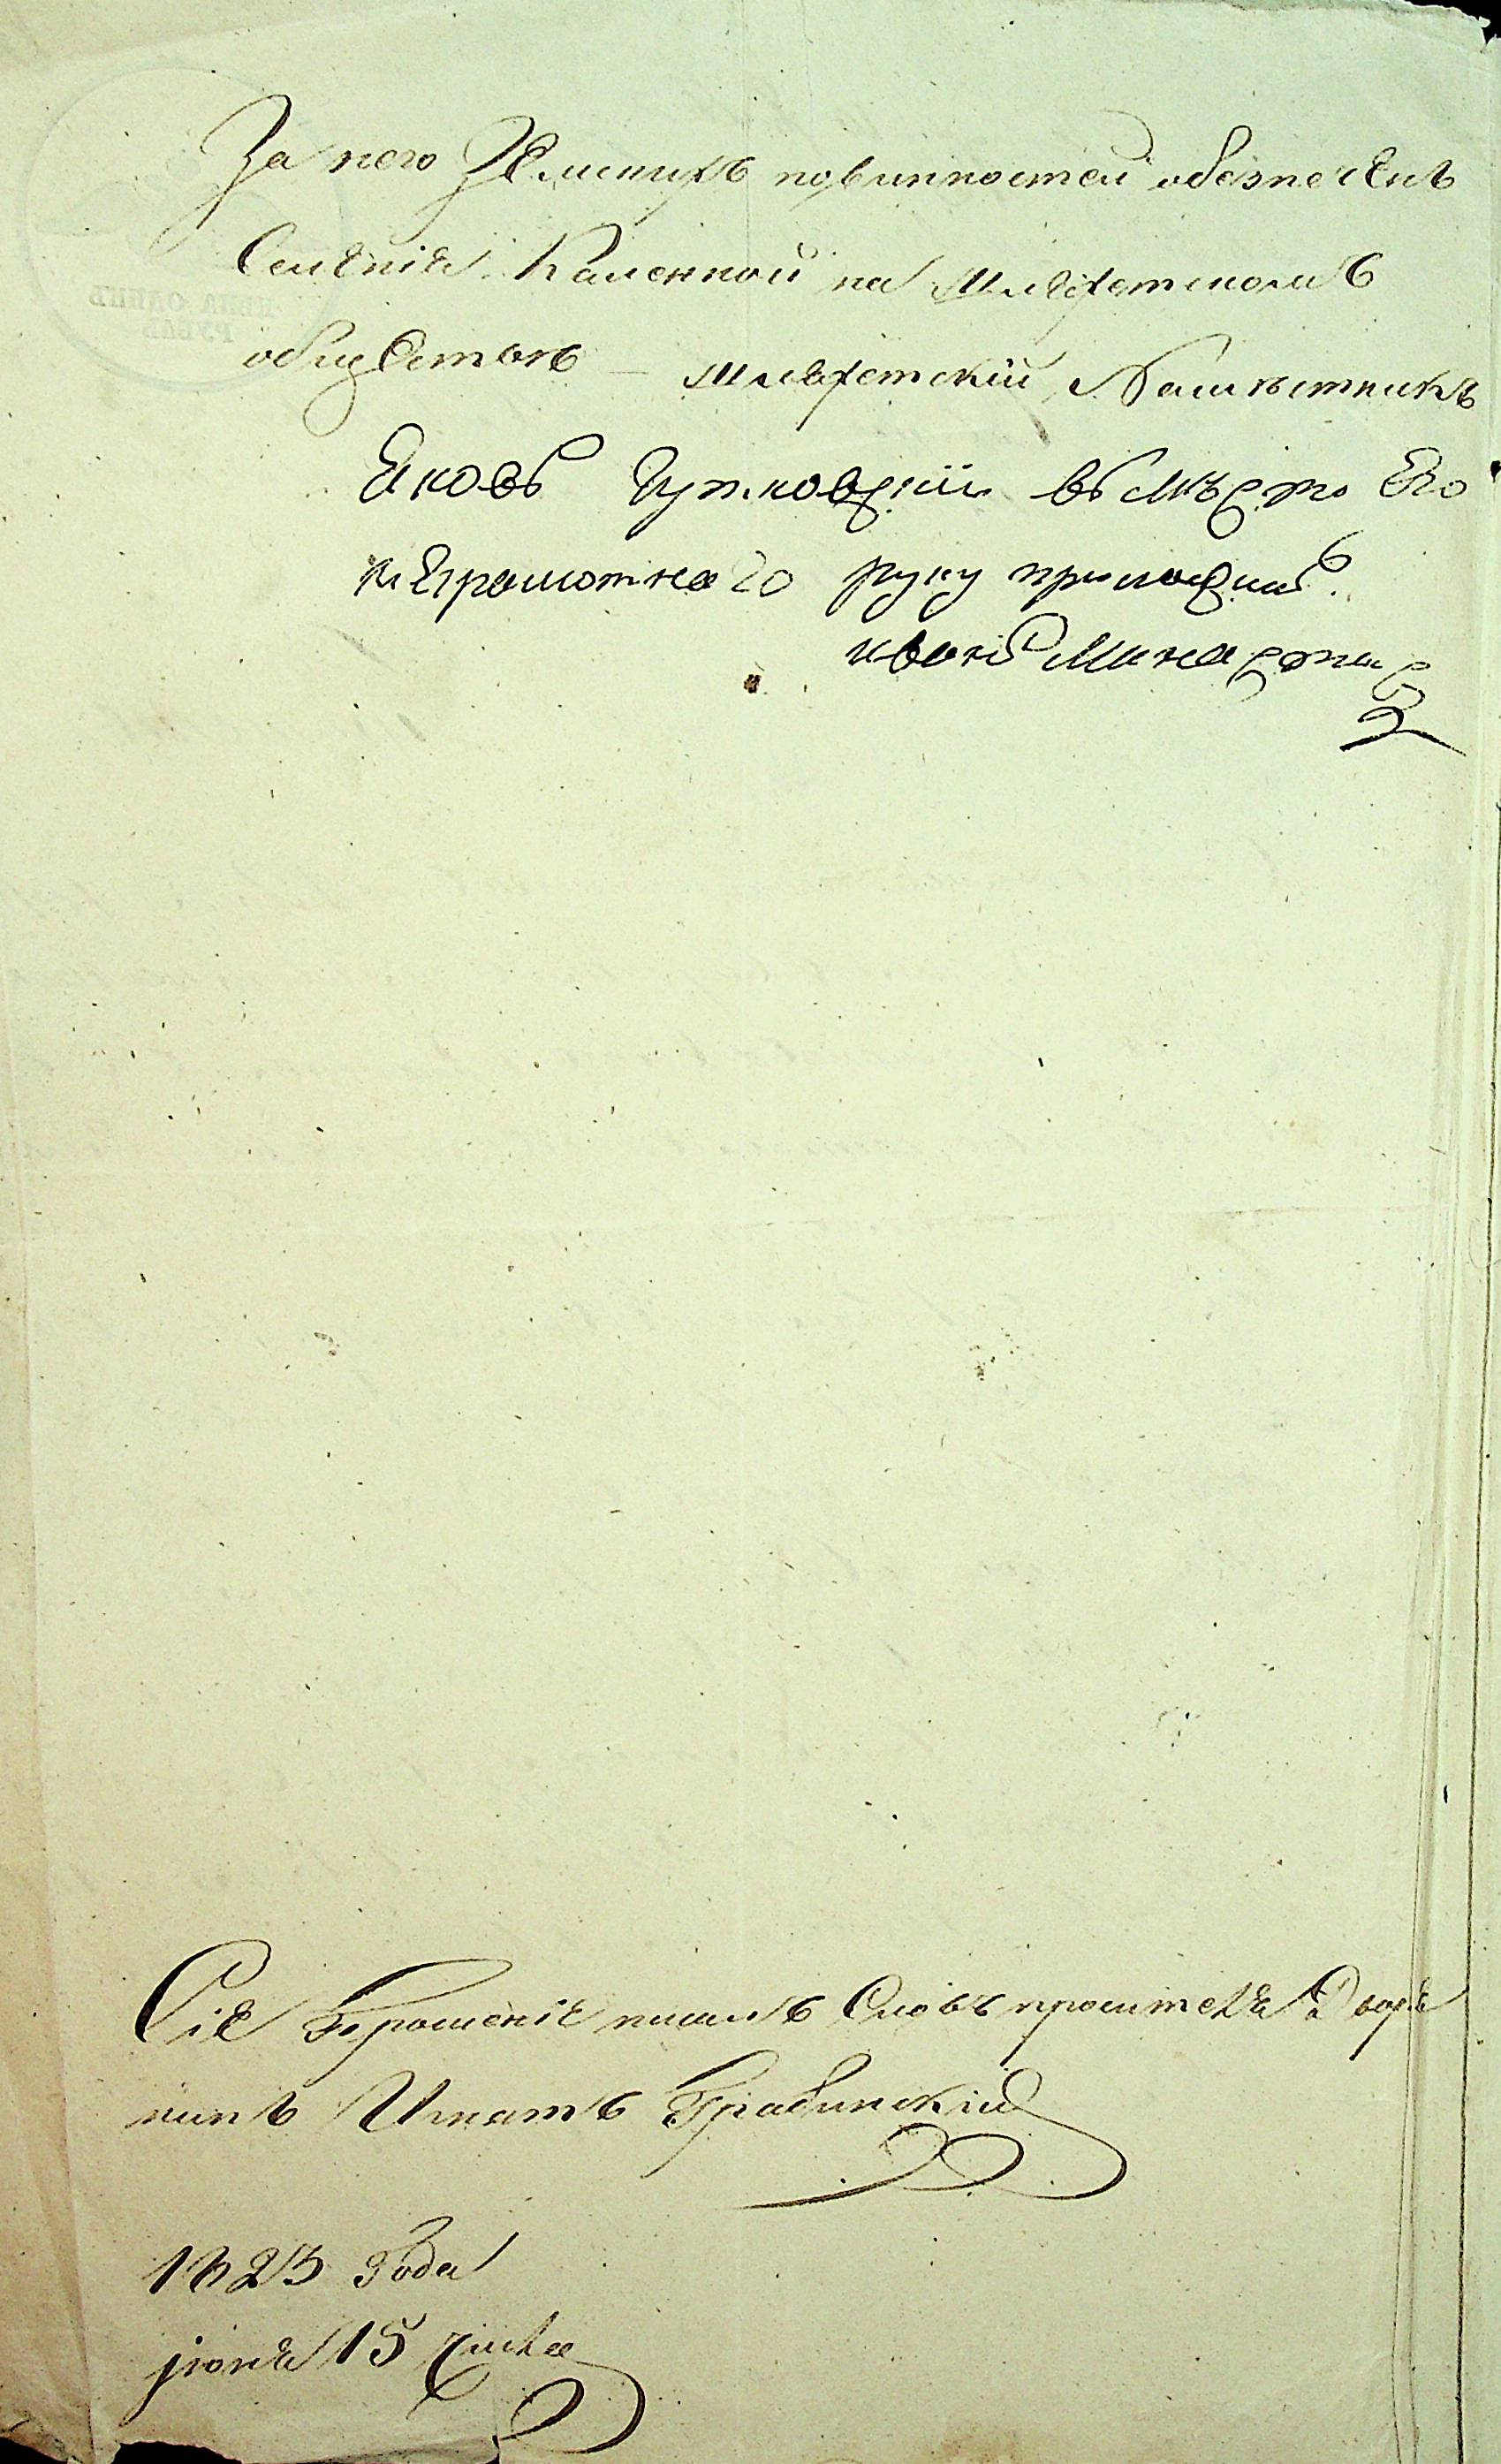 За него Земскихъ повинностей обезпеченъ
Селенія Каменкой на Шляхетскомъ
обществѣ — Шляхетскій Намѣстникъ
Яковъ Гутковскій въ мѣсто Его
неграмотнаго руку приложилъ
иванъ
Сіе Прошеніе писалъ Словъ просителя Дворя
нинъ Игнатъ Грабинскій
1823 Года
іюня 15 числа